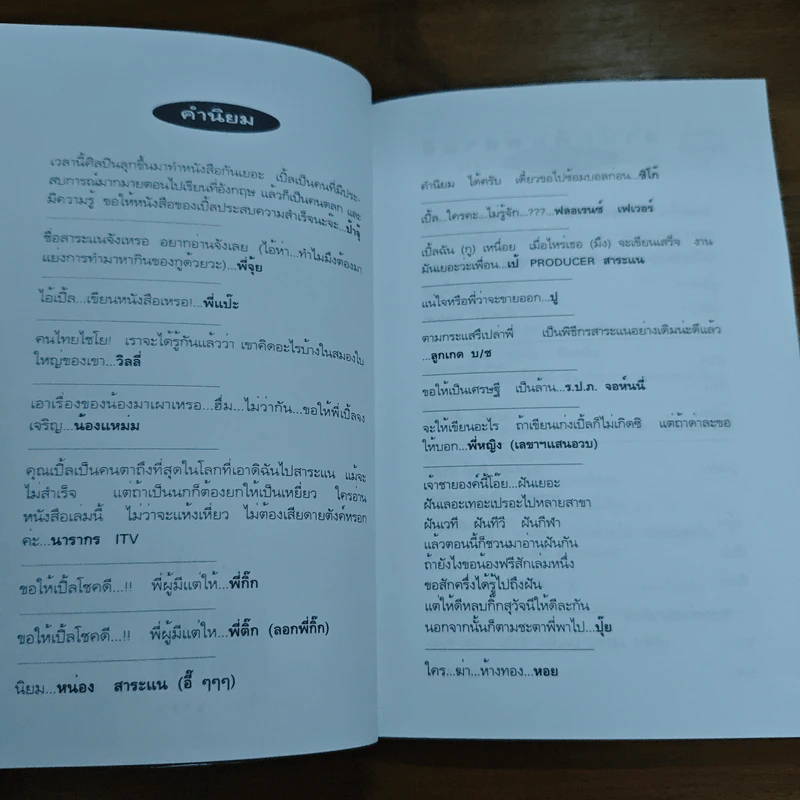 คำนิยม
เวลานี้ศิลปินลุกขึ้นมาทำหนังสือกันเยอะ เบิ้ลเป็นคนที่มีประ-
สบการณ์มากมายตอนไปเรียนที่อังกฤษ แล้วก็เป็นคนตลก และ
มีความรู้ ขอให้หนังสือของเบิ้ลประสบความสำเร็จนะจ๊ะ...ป้าจุ๊
ชื่อสาระแนจังเหรอ อยากอ่านจังเลย (ไอ้ห่า...ทำไมมึงต้องมา
แย่งการทำมาหากินของกูด้วยวะ)...พี่จุ้ย
ไอ้เบิ้ล...เขียนหนังสือเหรอ!...พี่แป๊ะ
คนไทยไชโย! เราจะได้รู้กันแล้วว่า เขาคิดอะไรบ้างในสมองใบ
ใหญ่ของเขา...วิลลี่
เอาเรื่องของน้องมาเผาเหรอ...ฮึ่ม...ไม่ว่ากัน...ขอให้พี่เบิ้ลจง
เจริญ...น้องแหม่ม
คุณเบิ้ลเป็นคนตาถึงที่สุดในโลกที่เอาดิฉันไปสาระแน แม้จะ
ไม่สำเร็จ แต่ถ้าเป็นนกก็ต้องยกให้เป็นเหยี่ยว ใครอ่าน
หนังสือเล่มนี้ ไม่ว่าจะแห้งเหี่ยว ไม่ต้องเสียดายตังค์หรอก
ค่ะ...นารากร ITV
ขอให้เบิ้ลโชคดี...!! พี่ผู้มีแต่ให้...พี่กิ๊ก
ขอให้เบิ้ลโชคดี...!! พี่ผู้มีแต่ให้...พี่ติ๊ก (ลอกพี่กิ๊ก)
นิยม...หน่อง สาระแน (อี๊ ๆๆๆ)
คำนิยม ได้ครับ เดี๋ยวขอไปซ้อมบอลก่อน...ซิโก้
เบิ้ล...ใครคะ...ไม่รู้จัก...???...ฟลอเรนซ์ เฟเวอร์
เบิ้ลฉัน (กู) เหนื่อย เมื่อไหร่เธอ (มึง) จะเขียนเสร็จ งาน
มันเยอะว่ะเพื่อน...เป้ PRODUCER สาระแน
แน่ใจหรือพี่ว่าจะขายออก...ปู
ตามกระแสรึเปล่าพี่ เป็นพิธีกรสาระแนอย่างเดิมน่ะดีแล้ว
...ลูกเกด บ/ช
ขอให้เป็นเศรษฐี เป็นล้าน...ร.ป.ภ. จอห์นนี่
จะให้เขียนอะไร ถ้าเขียนเก่งเบิ้ลก็ไม่เกิดซิ แต่ถ้าด่าละขอ
ให้บอก...พี่หญิง (เลขาฯแสนอวบ)
เจ้าชายองค์นี้โอ๊ย...ฝันเยอะ
ฝันเลอะเทอะเปรอะไปหลายสาขา
ฝันเวที ฝันทีวี ฝันกีฬา
แล้วตอนนี้ก็ชวนมาอ่านฝันกัน
ถ้ายังไงขอน้องฟรีสักเล่มหนึ่ง
ขอสักครึ่งได้รู้ไปถึงฝัน
แต่ให้ดีหลบกิ๊กสุวัจนีให้ดีละกัน
นอกจากนั้นก็ตามชะตาพี่พาไป...ปุ๊ย
ใคร...ฆ่า...ห้างทอง...หอย